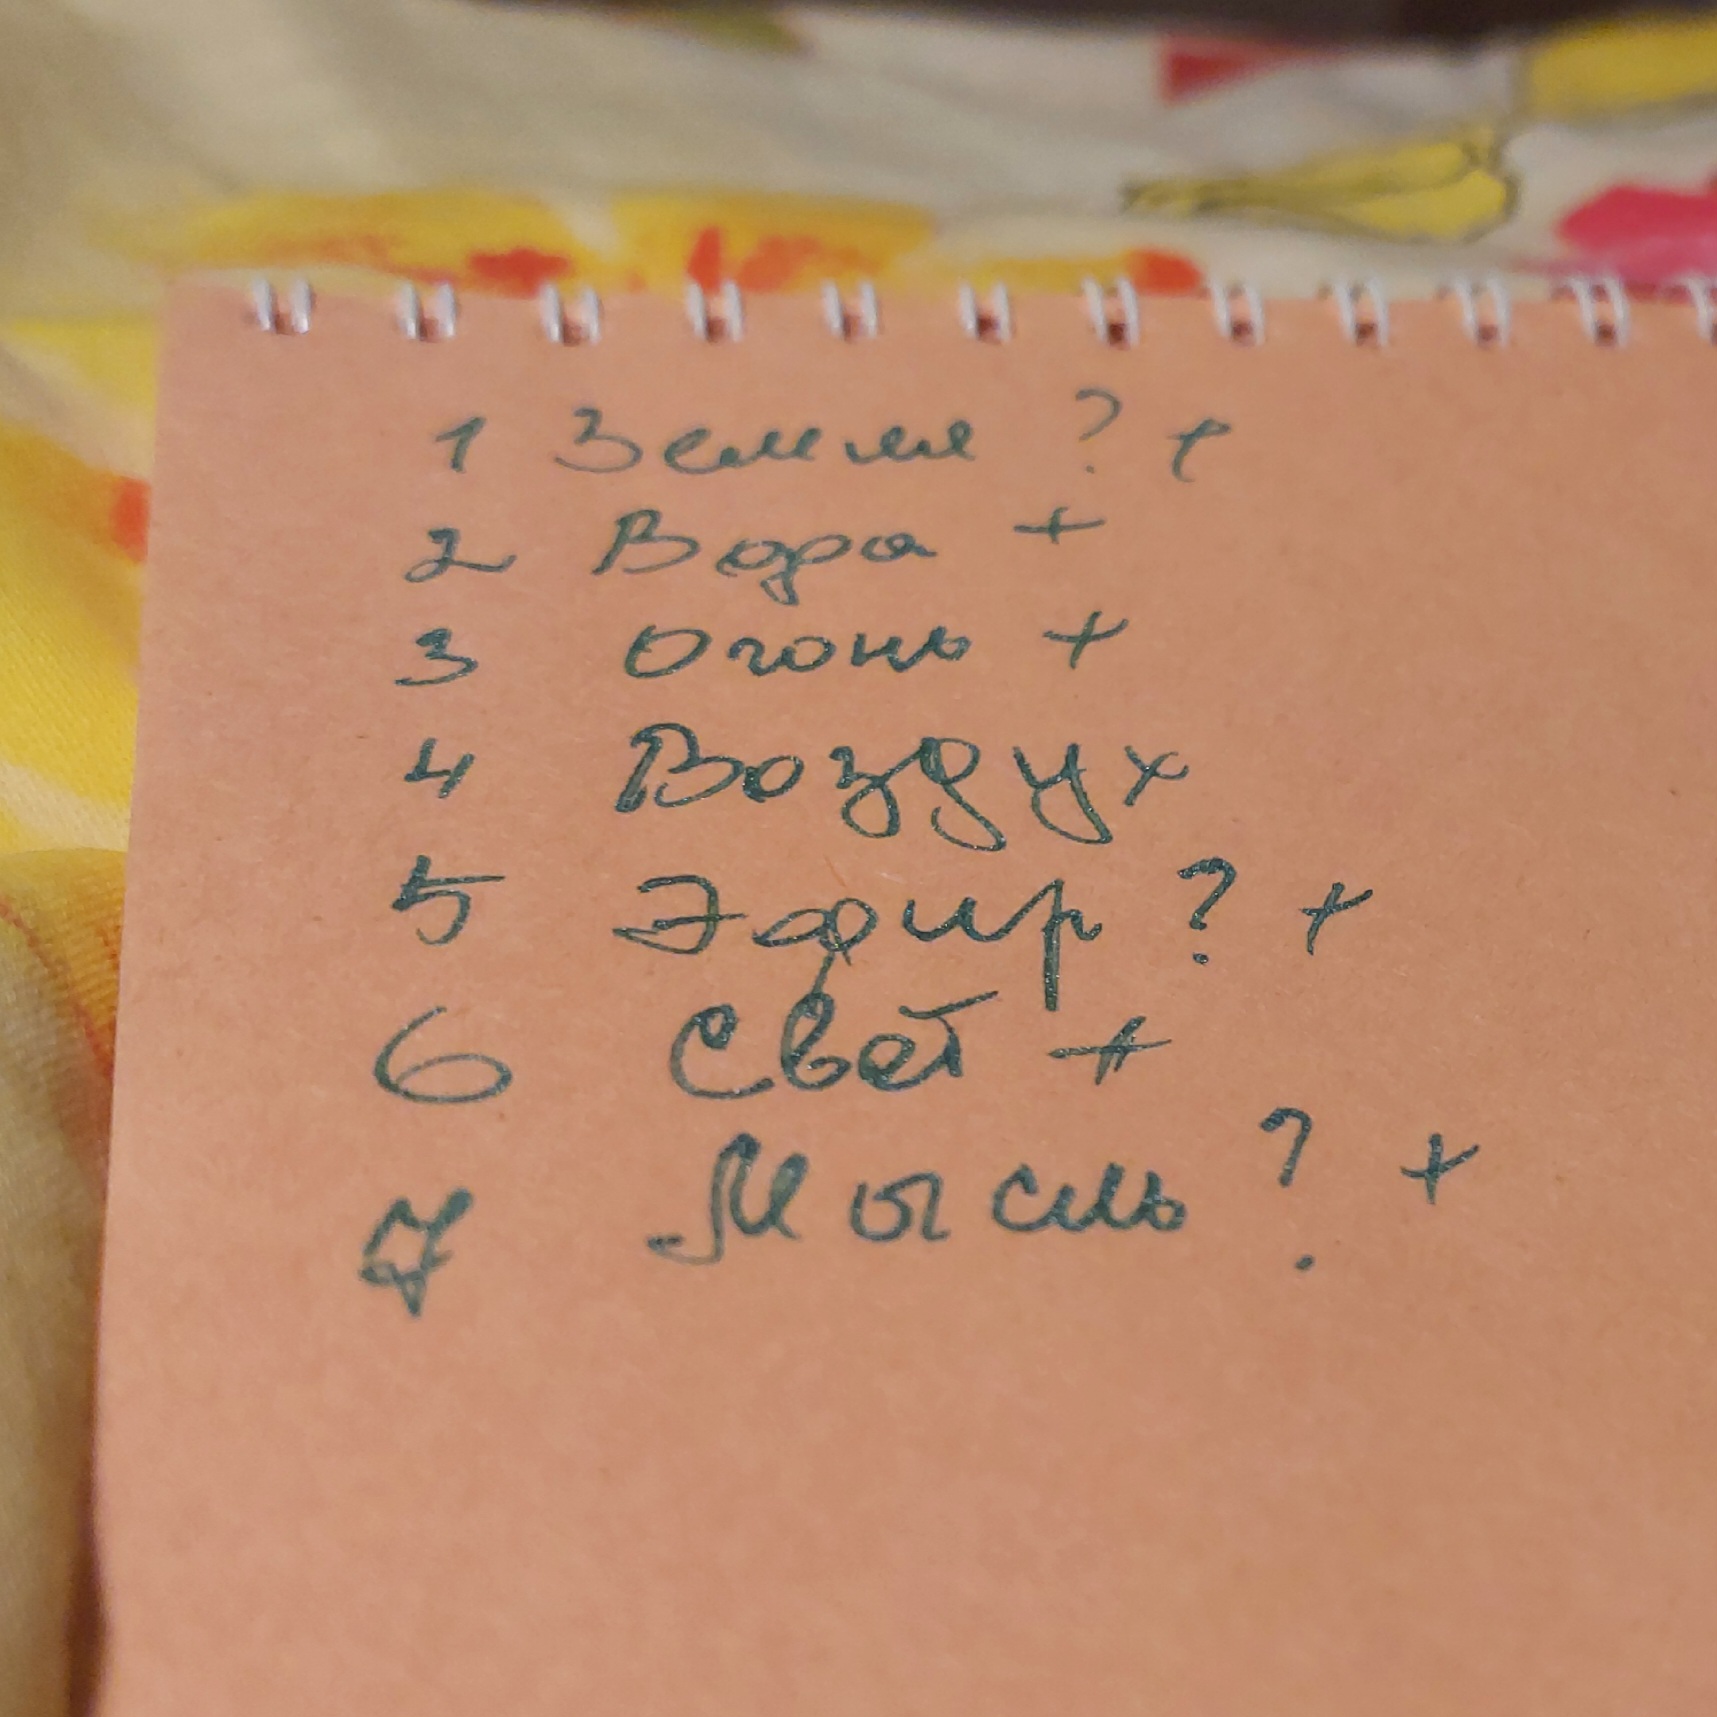 1 Земля ? +
2 Вода +
3 Огонь +
4 Воздух
5 Эфир ? +
6 Свет +
7 Мысль ? +